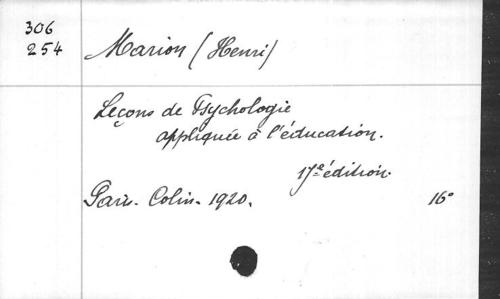 306
254
Marion (Henri)
Leçons de Psychologie
appliquée à l'éducation.
17e édition.
Paris. Colin. 1920. 16°